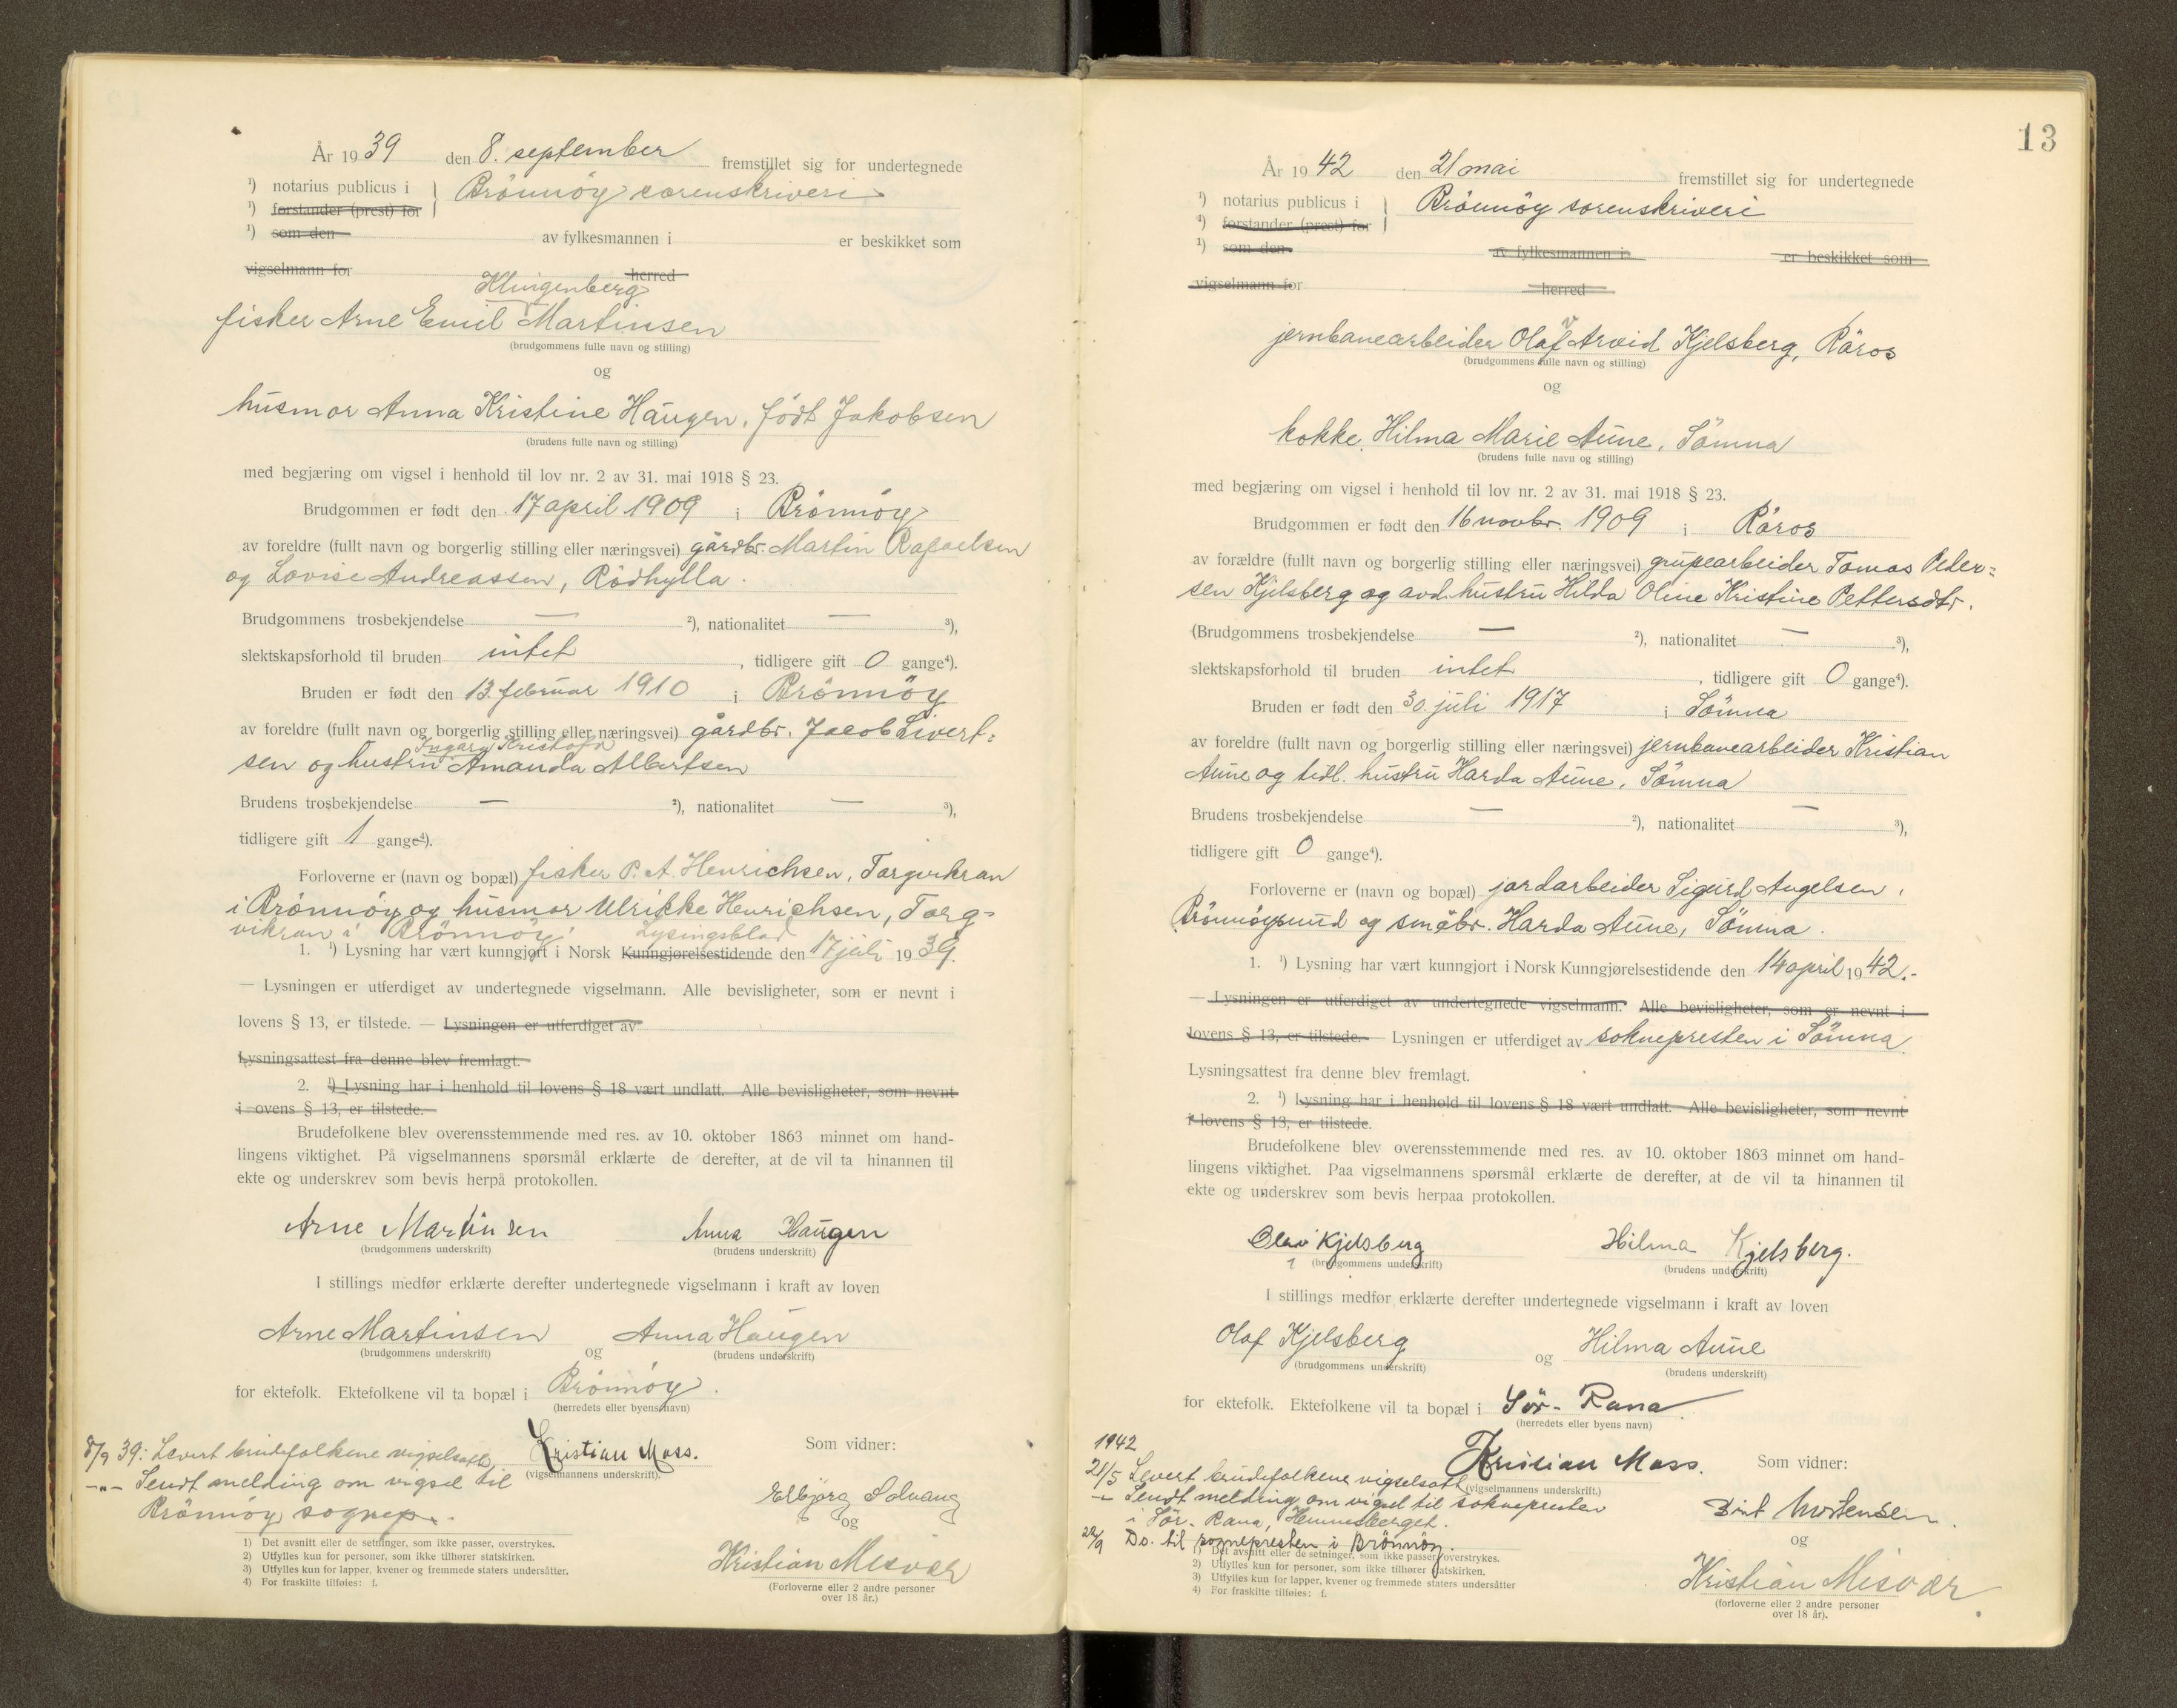 År 1939 den 8. september fremstillet sig for undertegnede
¹) notarius publicus i } Brönnöy sorenskriveri
¹) forstander (prest) for
¹) som den av fylkesmannen i er beskikket som
vigselmann for herred
Klingenberg
fisker Arne Emil Martinsen
(brudgommens fulle navn og stilling)
og
husmor Anna Kristine Haugen, født Jakobsen
(brudens fulle navn og stilling)
med begjæring om vigsel i henhold til lov nr. 2 av 31. mai 1918 § 23.
Brudgommen er født den 17 april 1909 i Brönnöy
av foreldre (fullt navn og borgerlig stilling eller næringsvei) gårdbr. Martin Rafaelsen
og Lovise Andreassen, Rödhylla.
Brudgommens trosbekjendelse — ²), nationalitet — ³),
slektskapsforhold til bruden intet, tidligere gift 0 gange⁴).
Bruden er født den 13 februar 1910 i Brönnöy
av foreldre (fullt navn og borgerlig stilling eller næringsvei) gårdbr. Jacob Sivert=
Kristofa
sen og hustru Amanda Albertsen
Brudens trosbekjendelse — ²), nationalitet — ³),
tidligere gift 1 gange⁴).
Forloverne er (navn og bopæl) fisker P. A. Henrichsen, Torgvikran
i Brönnöy og husmor Ulrikke Henrichsen, Torg-
vikran i Brönnöy. Lysingsblad
1. ¹) Lysning har vært kunngjort i Norsk Kunngjørelsestidende den 17 juli 1939.
— Lysningen er utferdiget av undertegnede vigselmann. Alle bevisligheter, som er nevnt i
lovens § 13, er tilstede. — Lysningen er utferdiget av
Lysningsattest fra denne blev fremlagt.
2. ¹) Lysning har i henhold til lovens § 18 vært undlatt. Alle bevisligheter, som nevnt
i ovens § 13, er tilstede.
Brudefolkene blev overensstemmende med res. av 10. oktober 1863 minnet om hand-
lingens viktighet. På vigselmannens spørsmål erklærte de derefter, at de vil ta hinannen til
ekte og underskrev som bevis herpå protokollen.
Arne Martinsen Anna Haugen
(brudgommens underskrift) (brudens underskrift)
I stillings medfør erklærte derefter undertegnede vigselmann i kraft av loven
Arne Martinsen og Anna Haugen
(brudgommens underskrift) (brudens underskrift)
for ektefolk. Ektefolkene vil ta bopæl i Brönnöy.
(herredets eller byens navn)
8/9 39: Levert brudefolkene vigselsatt. Kristian Moss. Som vidner:
(vigselmannens underskrift).
-"- Sendt melding om vigsel til
Brönnöy sognep. Elbjørg Solvang
og
Kristian Misvær
(Forloverne eller 2 andre personer
over 18 år.)
1) Det avsnitt eller de setninger, som ikke passer, overstrykes.
2) Utfylles kun for personer, som ikke tilhører statskirken.
3) Utfylles kun for lapper, kvener og fremmede staters undersåtter.
4) For fraskilte tilføies: f.
13
År 1942 den 21 mai fremstillet sig for undertegnede
¹) notarius publicus i } Brönnöy sorenskriveri
¹) forstander (prest) for
¹) som den av fylkesmannen i er beskikket som
vigselmann for herred
v
jernbanearbeider Olaf Arvid Kjelsberg, Röros
(brudgommens fulle navn og stilling)
og
kokke Hilma Marie Aune, Sömna
(brudens fulle navn og stilling)
med begjæring om vigsel i henhold til lov nr. 2 av 31. mai 1918 § 23.
Brudgommen er født den 16 novbr. 1909 i Röros
av forældre (fullt navn og borgerlig stilling eller næringsvei) grupearbeider Tomas Peder=
sen Kjelsberg og avd. hustru Hilda Oline Kristine Pettersdtr.
(Brudgommens trosbekjendelse — ²), nationalitet — ³),
slektskapsforhold til bruden intet, tidligere gift 0 gange⁴).
Bruden er født den 30. juli 1917 i Sömna
av foreldre (fullt navn og borgerlig stilling eller næringsvei) jernbanearbeider Kristian
Aune og tidl. hustru Harda Aune, Sömna
Brudens trosbekjendelse — ²), nationalitet — ³),
tidligere gift 0 gange⁴).
Forloverne er (navn og bopæl) jordarbeider Sigurd Angelsen,
Brönnöysund og småbr. Harda Aune, Sömna.
1. ¹) Lysning har vært kunngjort i Norsk Kunngjørelsestidende den 14 april 1942.-
— Lysningen er utferdiget av undertegnede vigselmann. Alle bevisligheter, som er nevnt i
lovens § 13, er tilstede. — Lysningen er utferdiget av soknepresten i Sömna.
Lysningsattest fra denne blev fremlagt.
2. ¹) Lysning har i henhold til lovens § 18 vært undlatt. Alle bevisligheter, som nevnt
i lovens § 13, er tilstede.
Brudefolkene blev overensstemmende med res. av 10. oktober 1863 minnet om hand-
lingens viktighet. Paa vigselmannens spørsmål erklærte de derefter, at de vil ta hinannen til
ekte og underskrev som bevis herpaa protokollen.
Olav Kjelsberg Hilma Kjelsberg.
(brudgommens underskrift) (brudens underskrift)
I stillings medfør erklærte derefter undertegnede vigselmann i kraft av loven
Olaf Kjelsberg og Hilma Aune
(brudgommens underskrift) (brudens underskrift)
for ektefolk. Ektefolkene vil ta bopæl i Sör-Rana.
(herredets eller byens navn)
1942 Kristian Moss. Som vidner:
21/5 Levert brudefolkene vigselsatt. (vigselmannens underskrift.)
-"- Sendt melding om vigsel til soknepresten
i Sör-Rana, Hemnesberget. Mortensen.
22/9 Do. til sognepresten i Brönnöy. og
Kristian Misvær.
(forloverne eller 2 andre personer
over 18 år).
1) Det avsnitt eller de setninger, som ikke passer, overstrykes.
2) Utfylles kun for personer, som ikke tilhører statskirken.
3) Utfylles kun for lapper, kvener og fremmede staters undersåtter
4) For fraskilte tilføies: f.